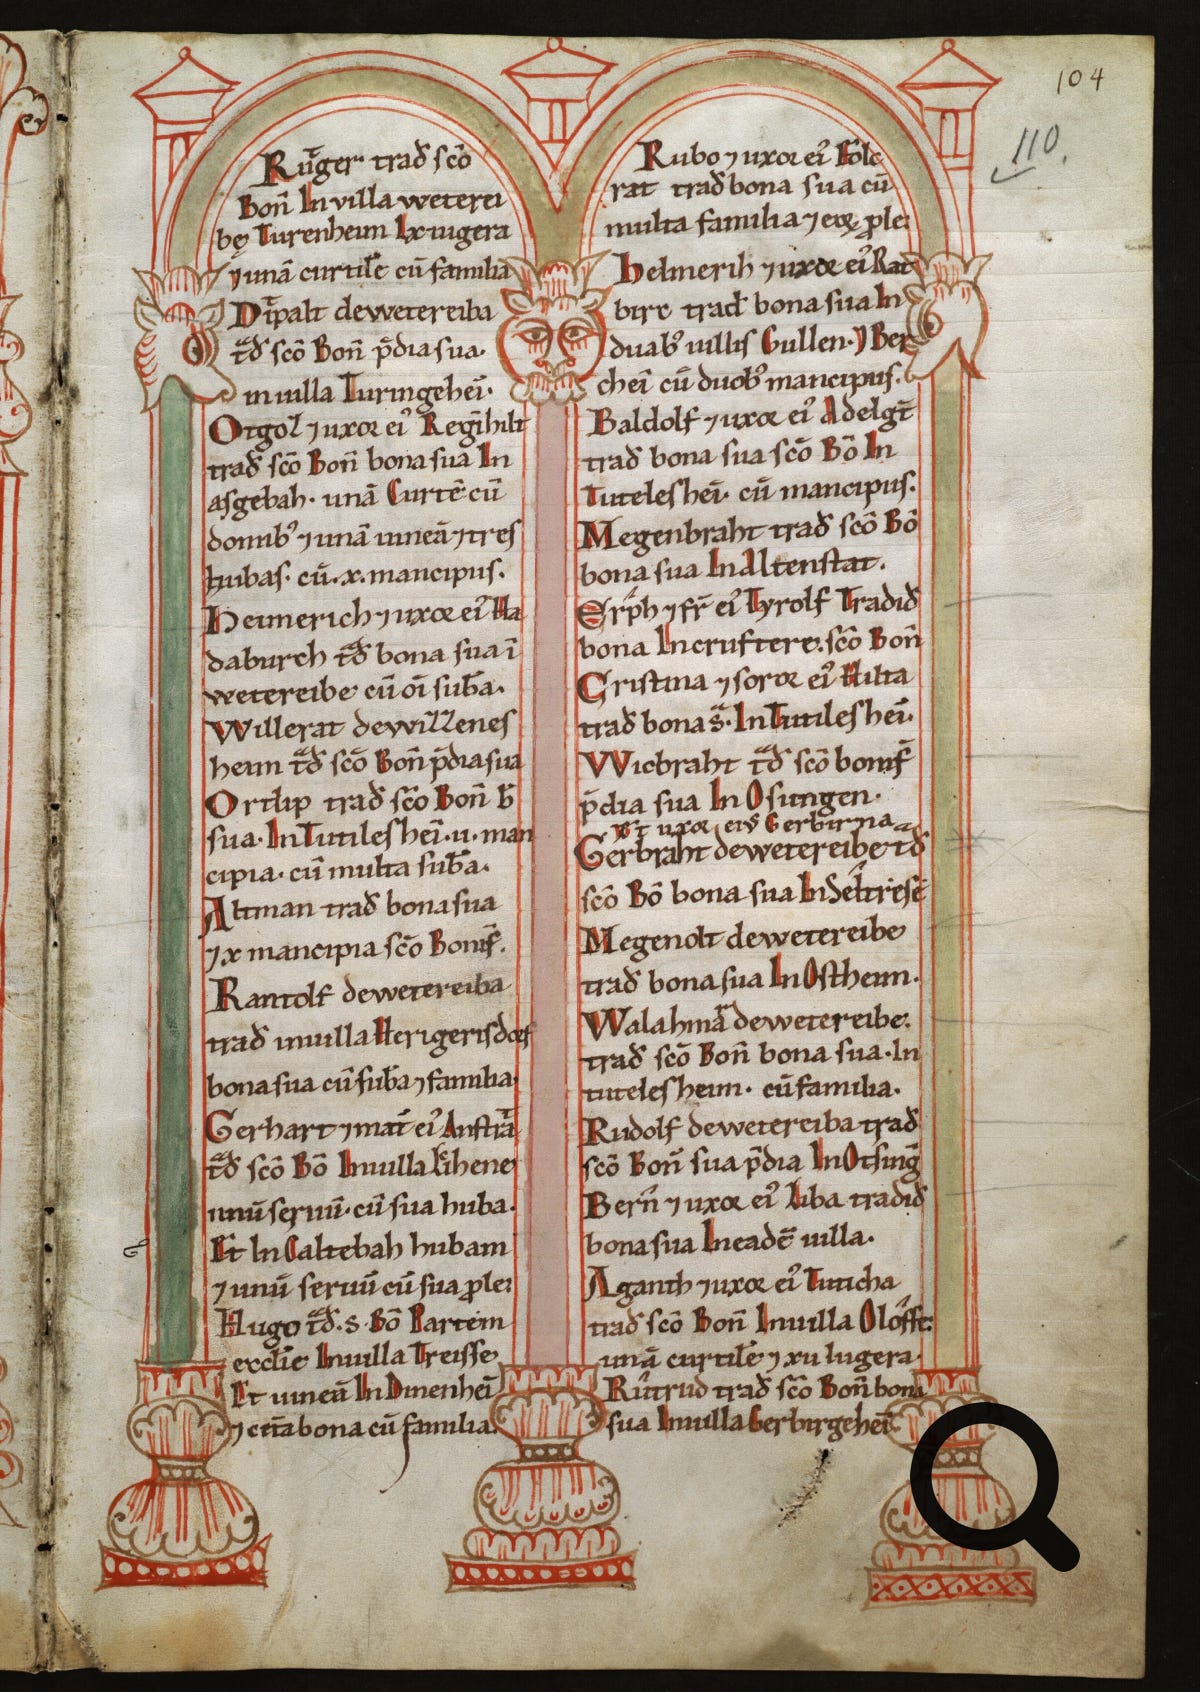 104
110.
Ruͦger trad̄ sc̄o
Bon̄ In villa weterei
bę Turenheim lx iugera
⁊ unā curtile cū familia
Dͣipalt de wetereiba
tͣd̄ sc̄o Bon̄ p̄dia sua.
in uilla Turingehei̅.
Otgoz ⁊ uxor eiꝰ Regīhilt
trad̄ sc̄o Bon̄ bona sua In
asgebah. unā Curtē cū
domibꝰ ⁊ unā uineā ⁊ tres
hubas. cū. x. mancipiis.
Heimerich ⁊ uxor eiꝰ Ha
daburch tͣd̄ bona sua ī
wetereibe cū oī sub̄a.
Willerat de willenes
heim tͣd̄ sc̄o Bon̄ p̄dia sua
Ortlip trad̄ sc̄o Bon̄ b̄
sua. In Tutileshei̅. u. man
cipia. cū multa sub̄a.
Altman trad̄ bona sua
⁊ x mancipia sc̄o Bonif̄.
Rantolf de wetereiba
trad̄ in uilla Herigerisdorf
bona sua cū sub̄a ⁊ familia.
Gerhart ⁊ mat̄ eiꝰ Anstrͣa
tͣd̄ sc̄o Bō In uilla Kͥhene
unū seruū. cū sua huba.
Et In Caltebah hubam
⁊ unū seruū cū sua ꝓle:
Hugo tͣd̄. s. Bō Partem
ecclīe In uilla Treisse
Et uineā In Dinenhei̅
⁊ cet̄a bona cū familia.
Rubo ⁊ uxor eiꝰ Folc
rat trad̄ bona sua cū
multa familia ⁊ eoꝝ ꝓle:
Helmerih ⁊ uxor eiꝰ Rat
birc trad̄ bona sua In
duabꝰ uillis Gullen. ⁊ Ber
chei̅ cū duobꝰ mancipiis.
Baldolf ⁊ uxor eiꝰ Adelgt̄
trad̄ bona sua sc̄o Bō In
Tuteleshei̅. cū mancipiis.
Megenbraht trad̄ sc̄o Bō
bona sua In Altenstat.
Erpͥh ⁊ fr̄ eiꝰ Tyrolf Tradid̄
bona In cruftere. sc̄o Bon̄
Cristina ⁊ soror eiꝰ Hilta
trad̄ bona sͣ. In Tutileshei̅.
Wicbraht tͣd̄ sc̄o bonif̄
p̄dia sua In Osungen.
Et uxor eiꝰ Gerbirna
Gerbraht de wetereibe tͣd̄
sc̄o Bō bona sua In Seltͥrese̅
Megenolt de wetereibe
trad̄ bona sua In Ostheim.
Walahmā de wetereibe.
trad̄ sc̄o Bon̄ bona sua. In
tutelesheim. cū familia.
Rudolf de wetereiba trad̄
sc̄o Bon̄ sua p̄dia In Otsing̅
Bern̄ ⁊ uxor eiꝰ Liba tradid̄
bona sua In eadē uilla.
Aganth ⁊ uxor eiꝰ Tuticha
trad̄ sc̄o Bon̄ In uilla Oloͥffe:
unā curtile ⁊ xu Iugera.
Ruͦtrud trad̄ sc̄o Bon̄ bona
sua In uilla Gerbirgehei̅